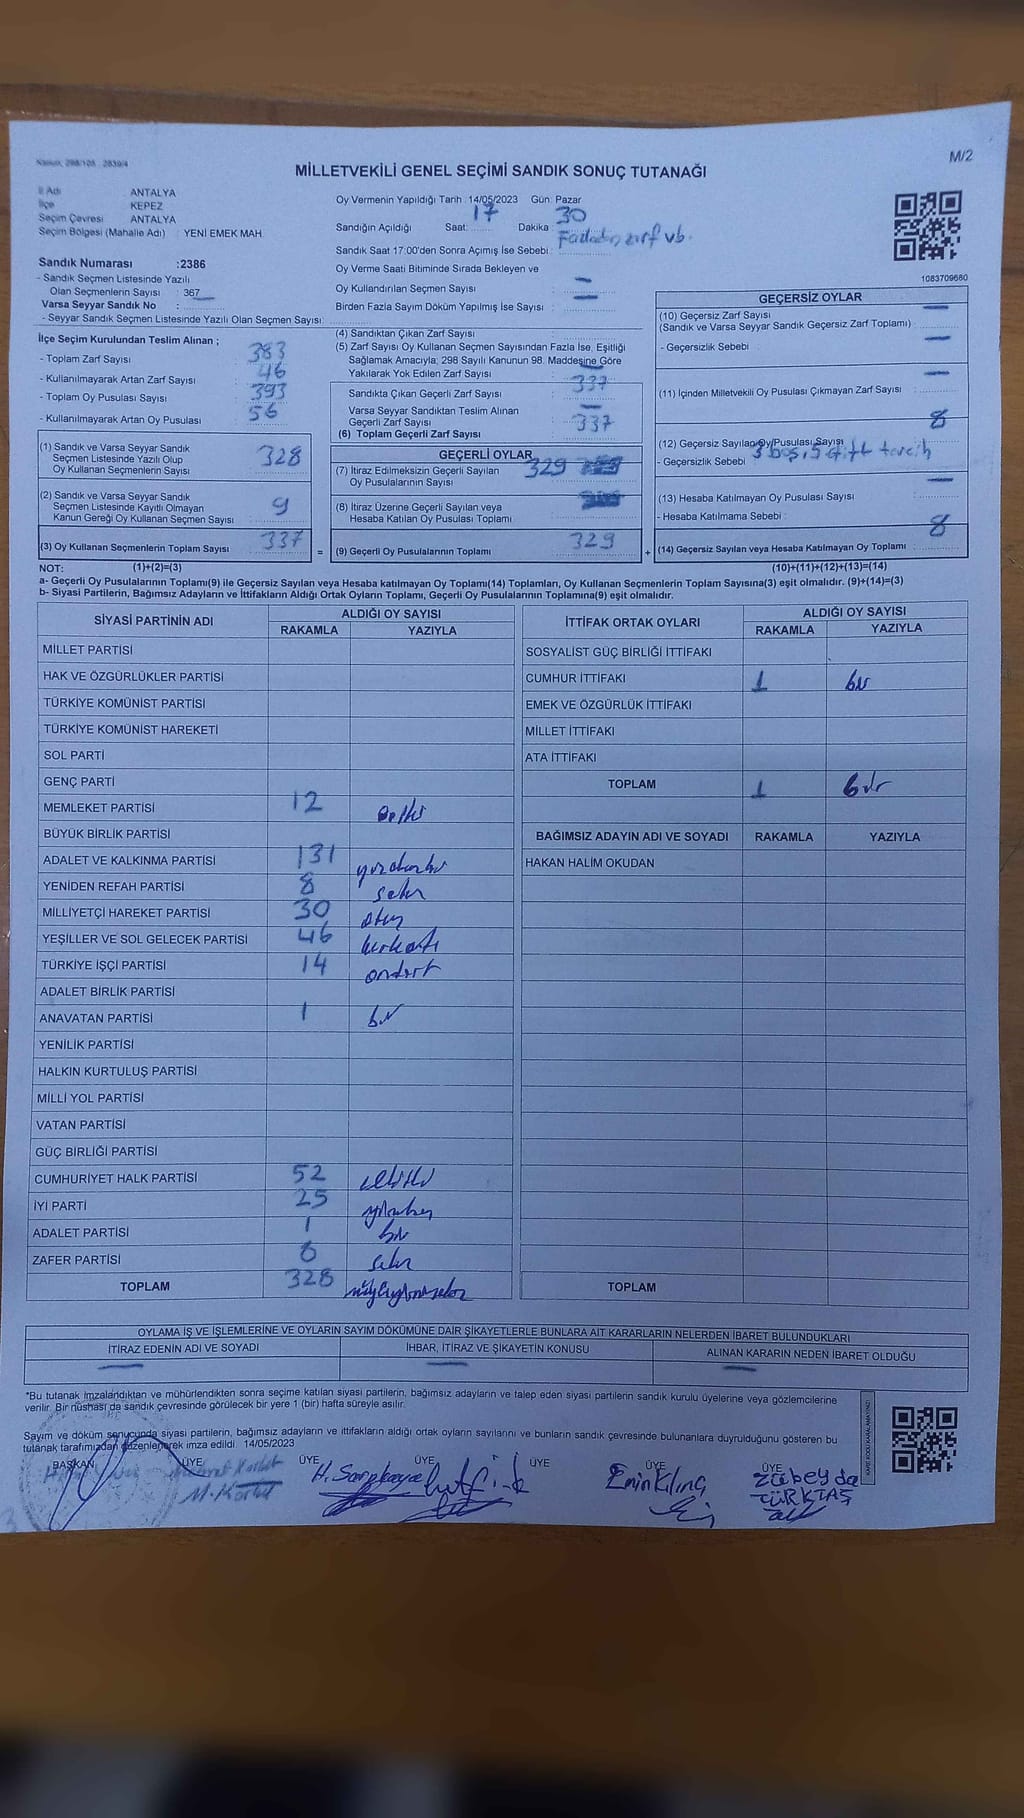 Kanun, 298/105 : 2839/4
M/2
MİLLETVEKİLİ GENEL SEÇİMİ SANDIK SONUÇ TUTANAĞI
İl Adı ANTALYA
İlçe KEPEZ
Seçim Çevresi ANTALYA
Seçim Bölgesi (Mahalle Adı) : YENİ EMEK MAH.
Oy Vermenin Yapıldığı Tarih : 14/05/2023 Gün: Pazar
Sandığın Açıldığı Saat: 17 Dakika : 30
Sandık Saat 17:00'den Sonra Açımış İse Sebebi : Fazladan zarf vb.
Oy Verme Saati Bitiminde Sırada Bekleyen ve
Oy Kullandırılan Seçmen Sayısı : —
Birden Fazla Sayım Döküm Yapılmış İse Sayısı : —
1083709680
Sandık Numarası :2386
- Sandık Seçmen Listesinde Yazılı
Olan Seçmenlerin Sayısı : 367
Varsa Seyyar Sandık No :
- Seyyar Sandık Seçmen Listesinde Yazılı Olan Seçmen Sayısı:
İlçe Seçim Kurulundan Teslim Alınan ;
- Toplam Zarf Sayısı : 383
- Kullanılmayarak Artan Zarf Sayısı : 46
- Toplam Oy Pusulası Sayısı : 393
- Kullanılmayarak Artan Oy Pusulası : 56
(1) Sandık ve Varsa Seyyar Sandık
Seçmen Listesinde Yazılı Olup
Oy Kullanan Seçmenlerin Sayısı : 328
(2) Sandık ve Varsa Seyyar Sandık
Seçmen Listesinde Kayıtlı Olmayan
Kanun Gereği Oy Kullanan Seçmen Sayısı : 9
(3) Oy Kullanan Seçmenlerin Toplam Sayısı : 337
(4) Sandıktan Çıkan Zarf Sayısı :
(5) Zarf Sayısı Oy Kullanan Seçmen Sayısından Fazla İse, Eşitliği
Sağlamak Amacıyla; 298 Sayılı Kanunun 98. Maddesine Göre
Yakılarak Yok Edilen Zarf Sayısı : —
Sandıkta Çıkan Geçerli Zarf Sayısı : 337
Varsa Seyyar Sandıktan Teslim Alınan
Geçerli Zarf Sayısı : —
(6) Toplam Geçerli Zarf Sayısı : 337
GEÇERLİ OYLAR
(7) İtiraz Edilmeksizin Geçerli Sayılan
Oy Pusulalarının Sayısı : 329
(8) İtiraz Üzerine Geçerli Sayılan veya
Hesaba Katılan Oy Pusulası Toplamı :
= (9) Geçerli Oy Pusulalarının Toplamı : 329
GEÇERSİZ OYLAR
(10) Geçersiz Zarf Sayısı : —
(Sandık ve Varsa Seyyar Sandık Geçersiz Zarf Toplamı) :
- Geçersizlik Sebebi : —
(11) İçinden Milletvekili Oy Pusulası Çıkmayan Zarf Sayısı : —
(12) Geçersiz Sayılan Oy Pusulası Sayısı : 8
- Geçersizlik Sebebi : 3 boş, 5 çift tercih
(13) Hesaba Katılmayan Oy Pusulası Sayısı : —
- Hesaba Katılmama Sebebi :
+ (14) Geçersiz Sayılan veya Hesaba Katılmayan Oy Toplamı : 8
NOT: (1)+(2)=(3) (10)+(11)+(12)+(13)=(14)
a- Geçerli Oy Pusulalarının Toplamı(9) ile Geçersiz Sayılan veya Hesaba katılmayan Oy Toplamı(14) Toplamları, Oy Kullanan Seçmenlerin Toplam Sayısına(3) eşit olmalıdır. (9)+(14)=(3)
b- Siyasi Partilerin, Bağımsız Adayların ve İttifakların Aldığı Ortak Oyların Toplamı, Geçerli Oy Pusulalarının Toplamına(9) eşit olmalıdır.
SİYASİ PARTİNİN ADI ALDIĞI OY SAYISI
RAKAMLA YAZIYLA
MİLLET PARTİSİ
HAK VE ÖZGÜRLÜKLER PARTİSİ
TÜRKİYE KOMÜNİST PARTİSİ
TÜRKİYE KOMÜNİST HAREKETİ
SOL PARTİ
GENÇ PARTİ
MEMLEKET PARTİSİ 12 oniki
BÜYÜK BİRLİK PARTİSİ
ADALET VE KALKINMA PARTİSİ 131 yüzotuzbir
YENİDEN REFAH PARTİSİ 8 sekiz
MİLLİYETÇİ HAREKET PARTİSİ 30 otuz
YEŞİLLER VE SOL GELECEK PARTİSİ 46 kırkaltı
TÜRKİYE İŞÇİ PARTİSİ 14 ondört
ADALET BİRLİK PARTİSİ
ANAVATAN PARTİSİ 1 bir
YENİLİK PARTİSİ
HALKIN KURTULUŞ PARTİSİ
MİLLİ YOL PARTİSİ
VATAN PARTİSİ
GÜÇ BİRLİĞİ PARTİSİ
CUMHURİYET HALK PARTİSİ 52 elliiki
İYİ PARTİ 25 yirmibeş
ADALET PARTİSİ 1 bir
ZAFER PARTİSİ 8 sekiz
TOPLAM 328 üçyüzyirmisekiz
İTTİFAK ORTAK OYLARI ALDIĞI OY SAYISI
RAKAMLA YAZIYLA
SOSYALİST GÜÇ BİRLİĞİ İTTİFAKI
CUMHUR İTTİFAKI 1 bir
EMEK VE ÖZGÜRLÜK İTTİFAKI
MİLLET İTTİFAKI
ATA İTTİFAKI
TOPLAM 1 bir
BAĞIMSIZ ADAYIN ADI VE SOYADI RAKAMLA YAZIYLA
HAKAN HALİM OKUDAN
TOPLAM
OYLAMA İŞ VE İŞLEMLERİNE VE OYLARIN SAYIM DÖKÜMÜNE DAİR ŞİKAYETLERLE BUNLARA AİT KARARLARIN NELERDEN İBARET BULUNDUKLARI
İTİRAZ EDENİN ADI VE SOYADI İHBAR, İTİRAZ VE ŞİKAYETİN KONUSU ALINAN KARARIN NEDEN İBARET OLDUĞU
— — —
*Bu tutanak imzalandıktan ve mühürlendikten sonra seçime katılan siyasi partilerin, bağımsız adayların ve talep eden siyasi partilerin sandık kurulu üyelerine veya gözlemcilerine
verilir. Bir nüshası da sandık çevresinde görülecek bir yere 1 (bir) hafta süreyle asılır.
Sayım ve döküm sonucunda siyasi partilerin, bağımsız adayların ve ittifakların aldığı ortak oyların sayılarını ve bunların sandık çevresinde bulunanlara duyrulduğunu gösteren bu
tutanak tarafımızdan düzenlenerek imza edildi. 14/05/2023
BAŞKAN ÜYE ÜYE ÜYE ÜYE ÜYE ÜYE
M. Kortut
H. Sarıkaya
Lutfi
Emin Kılınç
Zübeyda
TÜRKTAŞ